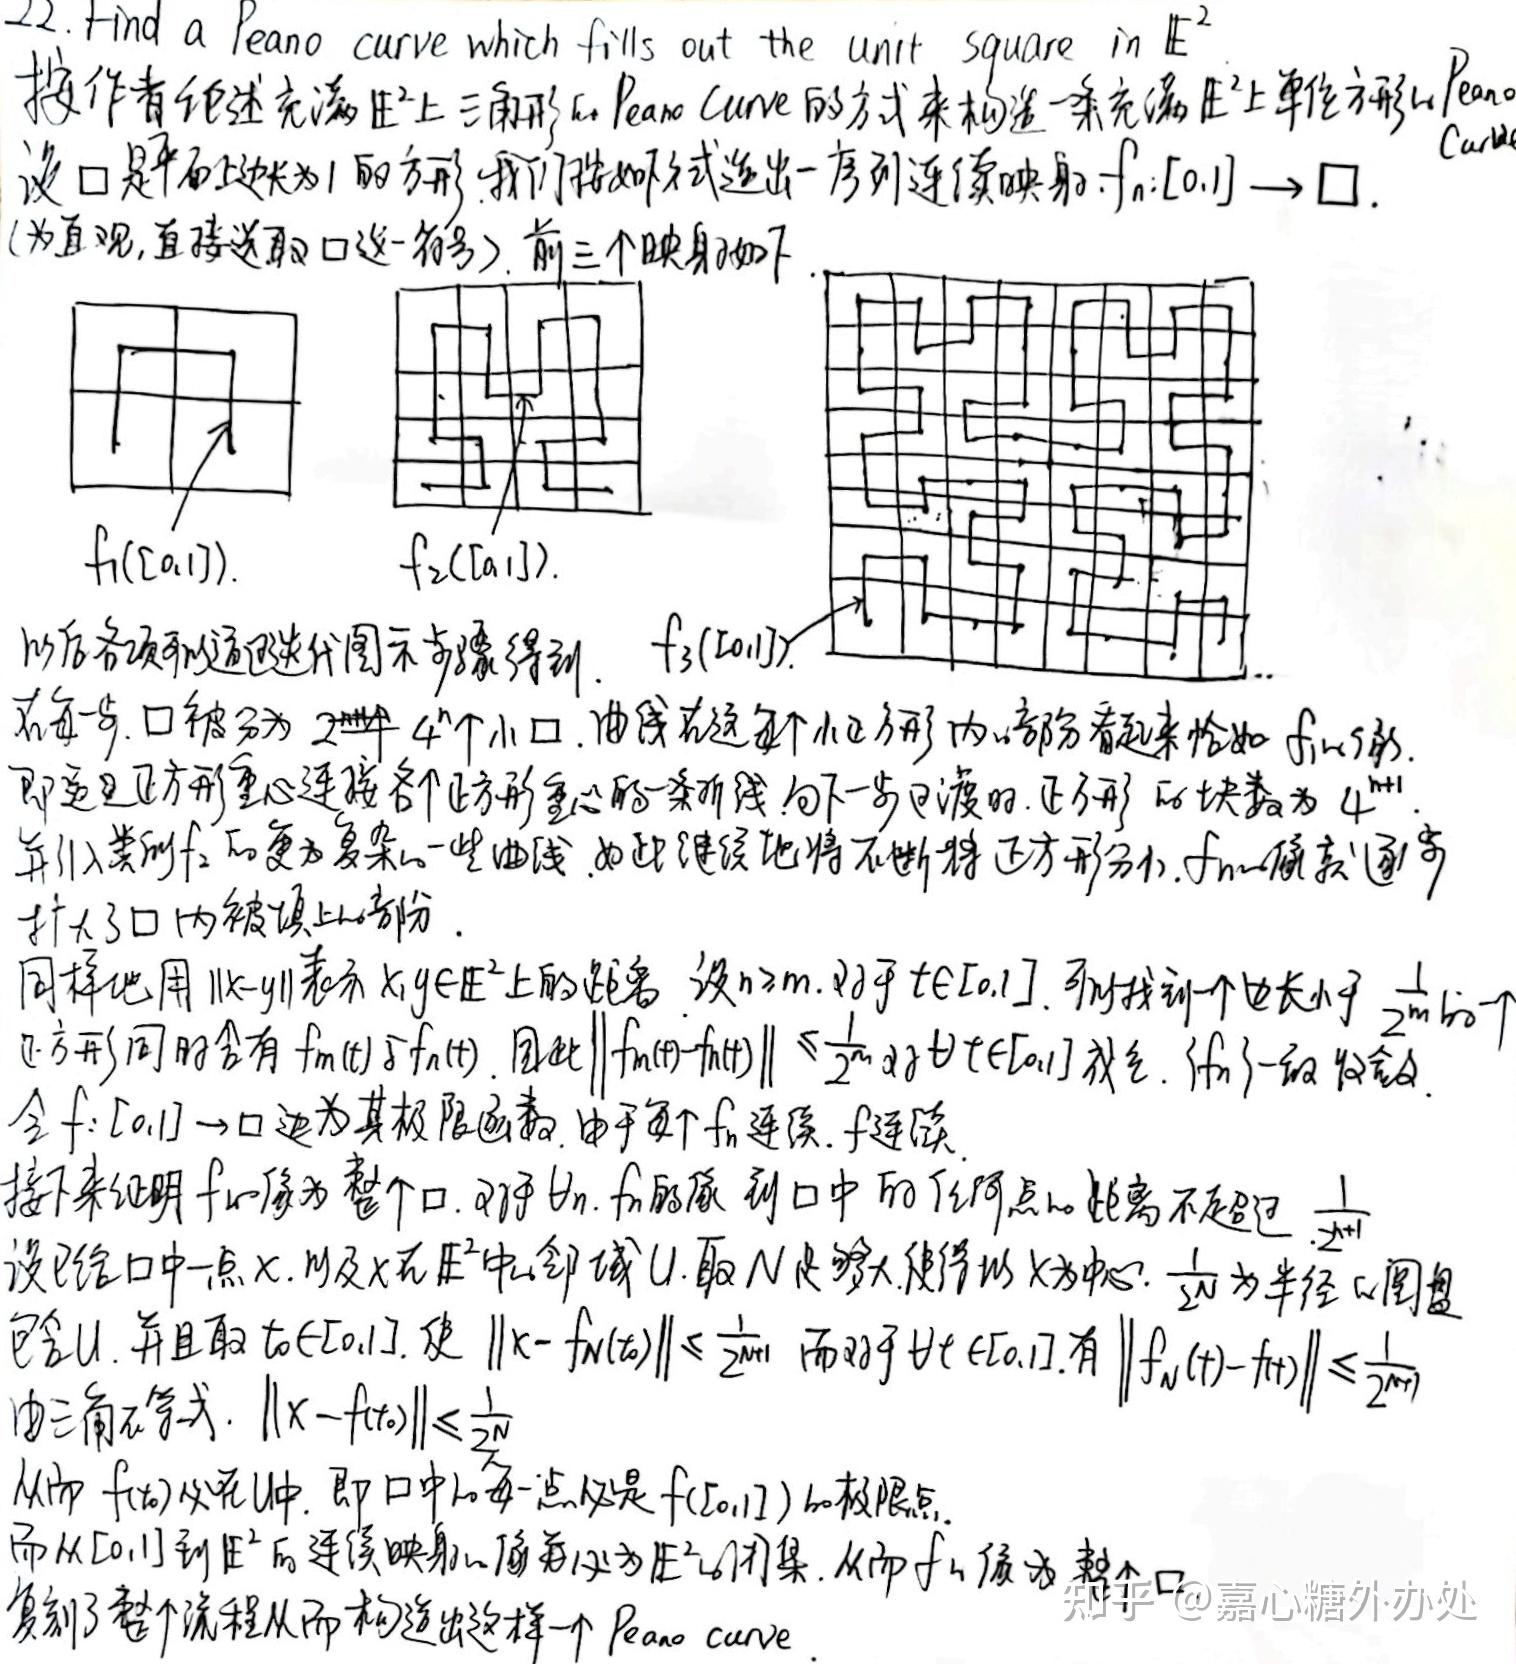 22. Find a Peano curve which fills out the unit square in E².
按作者组述充满E²上三角形的Peano Curve的方式来构造一条充满E²上单位方形的Peano Curve
设□是平面上边长为1的方形.我们按如下方式造出一序列连续映射:fn:[0,1]→□.
(为直观,直接选取□这一符号).前三个映射如下.
f₁([0,1]).
f₂([0,1]).
f₃([0,1]).
以后各项可以通过迭代图示步骤得到.
在每一步.□被分为 4ⁿ个小□.曲线在这每个小正方形内的部分看起来恰如f₁的像.
即这是正方形重心连接各个正方形重心的一条折线.向下一步过渡时.正方形的块数为4ⁿ⁺¹.
并引入类似f₂的更为复杂的一些曲线.如此继续地将不断将正方形分小.fn的像就逐步
扩大了□内被填上的部份.
同样地用||x-y||表示x,y∈E²上的距离.设n≥m.对于t∈[0,1].可以找到一个边长小于1/2ᵐ的一个
正方形同时含有fm(t)与fn(t).因此||fm(t)-fn(t)||≤1/2ᵐ对∀t∈[0,1]成立.{fn}一致收敛.
令f:[0,1]→□ 为其极限函数.由于每个fn连续.f连续.
接下来证明f的像为整个□.对于∀n.fn的像到□中的任何点的距离不超过1/2ⁿ⁺¹
设已给□中一点x.以及x在E²中的邻域U.取N足够大.使得以x为中心.1/2ᴺ为半径的圆盘
包含U.并且取t₀∈[0,1].使||x-fN(t₀)||≤1/2ᴺ⁺¹ 而对于∀t∈[0,1].有||fN(t)-f(t)||≤1/2ᴺ⁺¹
由三角不等式.||x-f(t₀)||≤1/2ᴺ
从而f(t₀)必在U中.即□中的每一点必是f([0,1])的极限点.
而从[0,1]到E²的连续映射的像必为E²的闭集.从而f的像为整个□
复刻了整个流程从而构造出这样一个Peano curve.
知乎 @嘉心糖外办处